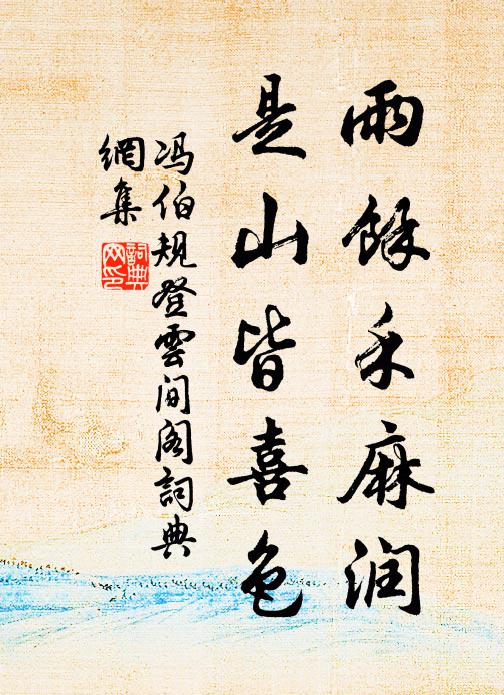 雨餘禾麻润
是山皆喜色
冯伯规登雲间阁詞典
網集
詞典
网印